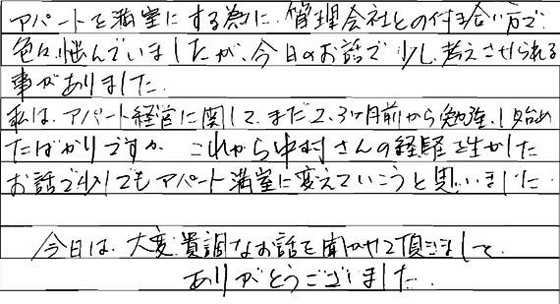 アパートを満室にする為に、管理会社との付き合い方で、
色々悩んでいましたが、今日のお話で少し考えさせられる
事がありました。
私は、アパート経営に関して、まだ2、3ヶ月前から勉強し始め
たばかりですが、これから中村さんの経験を生かした
お話で少しでもアパート満室に変えていこうと思いました。
今日は、大変貴調なお話を聞かせて頂きまして、
ありがとうございました。